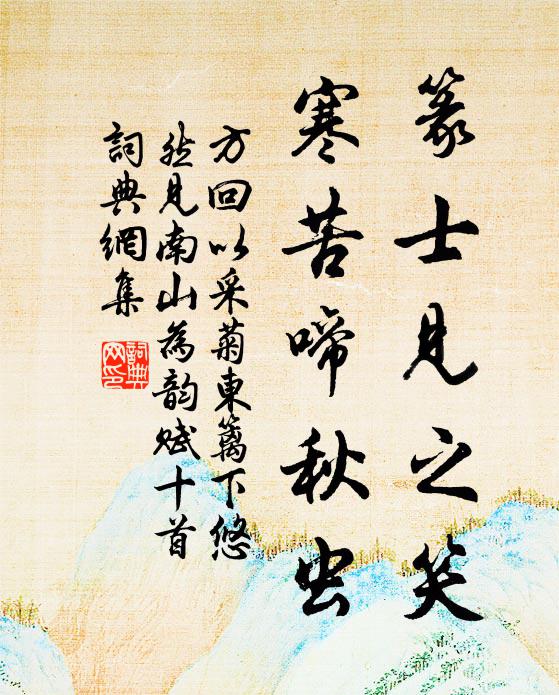 篆士見之笑
寒苦啼秋虫
方回以采菊東籬下悠
然見南山為韵賦十首
詞典網集
詞典
网印